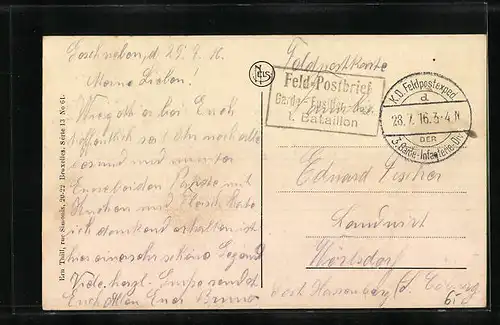 Geschrieben, d. 29. 7. 16.
Meine Lieben.
Wie geht es bei Euch
hoffentlich seit Ihr noch alle
gesund und munter
Eure beiden Pakete mit
Kuchen und Fleisch habe
ich dankend erhalten ist
hier eine sehr schöne Gegend
Viele herzl. Grüße sendet
Euch Allen Euer Bruno
Ern Thill, rue 20-22 Bruxelles. Série 13 No 61.
NELS
Feldpostkarte
Feld-Postbrief
Garde-Füsilier-
I. Bataillon
K.D. Feldpostexped.
a
28.7.16.3-4 N
DER
3. Garde-Infanterie-Div.
Eduard Fischer
Landwirt
Wörlsdorf
Post Hassenberg